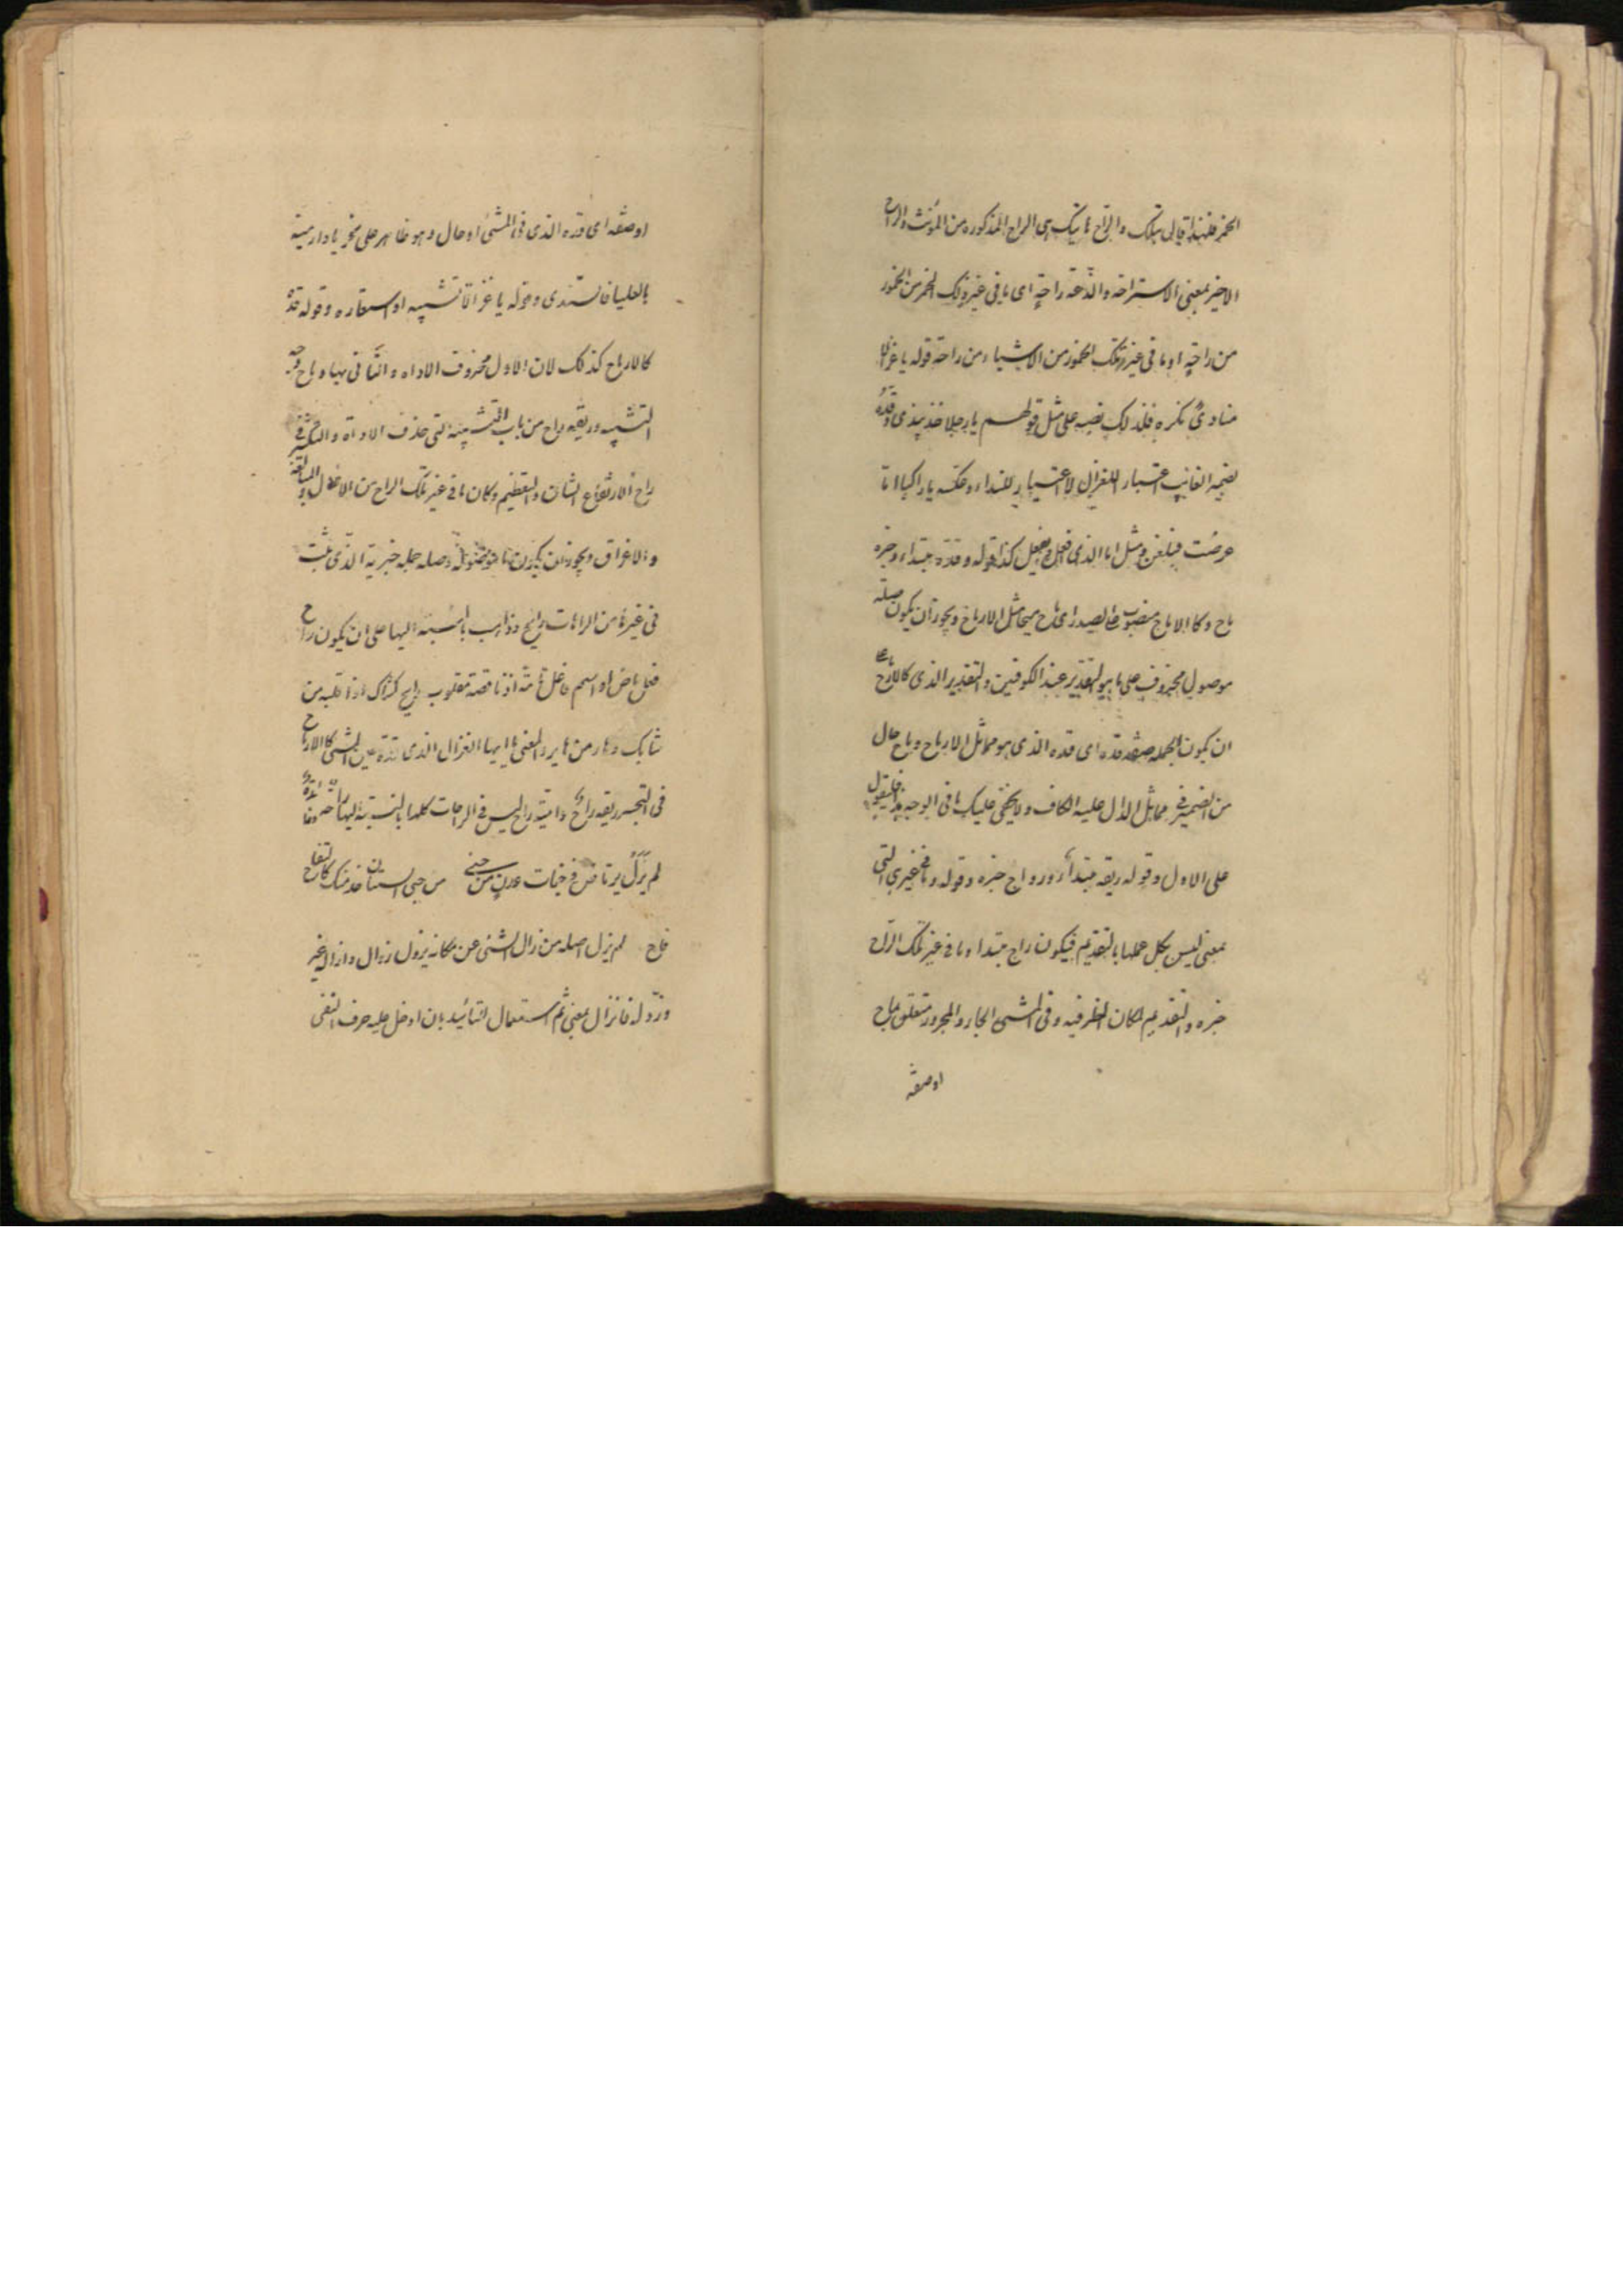 الخمر فلهذا قال بتلك والراح هاتيك اى الراح المذكوره من المؤنث والراح
الاخير بمعنى الاستراحه والدعة راحة اى ما فى غير ذلك الخمر من الخمور
من راحة او ما فى غير تلك الخمور من الاشياء من راحة قوله يا غزالا
منادى نكره فلذلك نصبه على مثل قولهم يا رجلا خذ بيدى وقده
بضمير الغايب اعتبار للغزال لا اعتبار للنداء وعكسه يا راكبا اما
عرضت فبلغن ومثل اما الذى فعل كذا قوله وقده مبتداء وخبره
ماح وكالارماح منصوب على المصدر اى ماح مثل الارماح ويجوز ان يكون صلة
موصول محذوف على ما هو التقدير عند الكوفيين والتقدير الذى كالارماح
ان يكون الجمله صفة قده اى قده الذى هو مماثل الارماح وماح حال
من الضمير فى مماثل الدال عليه الكاف ولا يخفى عليك ما فى الوجه
على الاول وقوله ريقه مبتداء وراح خبره وقوله وما فى غيرها التى
بمعنى ليس بطل عملها بالتقديم فيكون راح مبتداء وما فى غير تلك الراح
خبره والتقديم لمكان الظرفيه وفى المشى الجار والمجرور متعلق بماح
او صفة
او صفة اى قده الذى فى المشى او حال وهو ظاهر على نحو يا دار مية
بالعليا فالسندى وقوله يا غزالا تشبيه او استعاره وقوله قده
كالارماح كذلك لان الاول محذوف الاداه والثانى بها وماح وجه
التشبيه وريقه راح من باب التشبيه التى حذف الاداة والتنكير فى
راح لارتفاع الشان والتعظيم وكان ما فى غير تلك الراح من
والاغراق ويجوز ان يكون ما موصولة وصله جمله خبرية الذى ثبت
فى غيرها من الراحات رايح وذاهب بالنسبة اليها على ان يكون راح
فعل ماض او اسم فاعل تامة او ناقصة مقلوب رايح كشاك اذا قلبه من
شايك وهار من هاير والمعنى يا ايها الغزال الذى قده عين المشى كالارماح
فى التبختر ريقه راح ليس فى الراحات كلها بالنسبة اليها
لم يزل يرتاض فى جنات عدن من جنى من جنى البستان خد منك كالتفاح
فاح لم يزل اصله من زال الشى عن مكانه يزول زوال وازاله غير
وزوله فانزال بمعنى ثم استعمال التابيد بان ادخل عليه حرف النفى